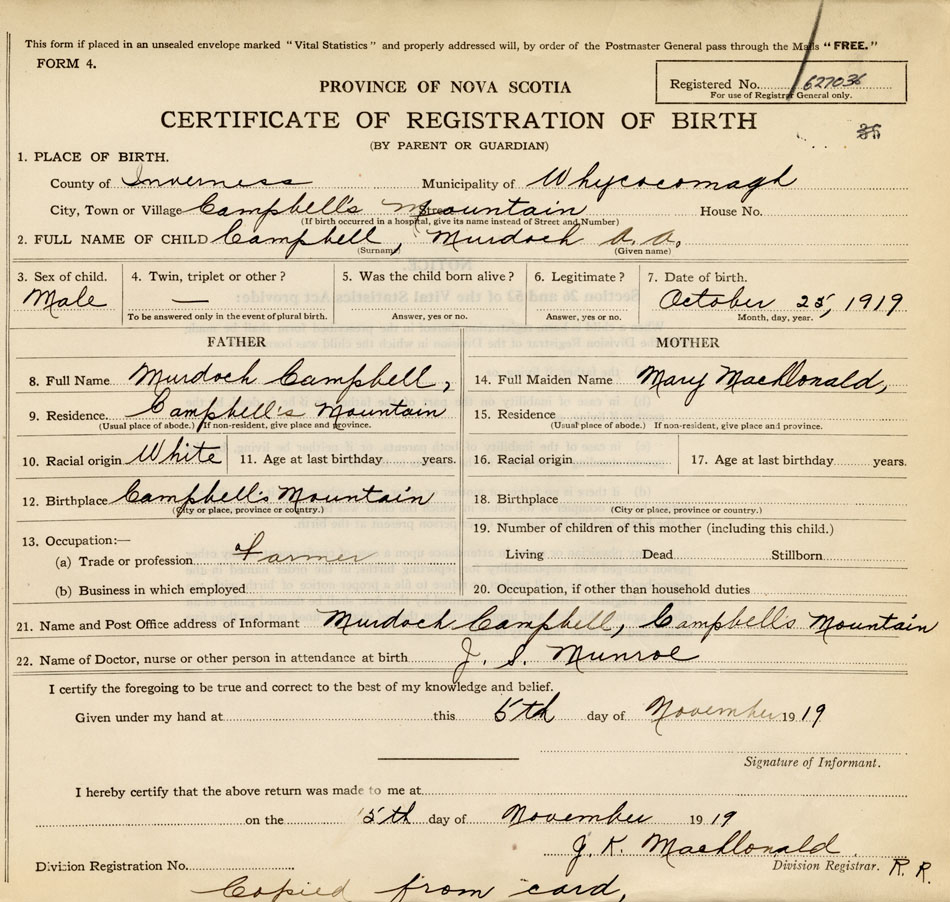 This form if placed in an unsealed envelope marked "Vital Statistics" and properly addressed will, by order of the Postmaster General pass through the Mails "FREE."
FORM 4.
Registered No. 627036
For use of Registrar General only.
PROVINCE OF NOVA SCOTIA
CERTIFICATE OF REGISTRATION OF BIRTH
(BY PARENT OR GUARDIAN)
1. PLACE OF BIRTH.
County of Inverness Municipality of Whycocomagh
City, Town or Village Campbell's Mountain Street House No.
(If birth occurred in a hospital, give its name instead of Street and Number)
2. FULL NAME OF CHILD Campbell, Murdoch A. A.
(Surname) (Given name)
3. Sex of child. 4. Twin, triplet or other? 5. Was the child born alive? 6. Legitimate? 7. Date of birth.
Male — October 25, 1919
To be answered only in the event of plural birth. Answer, yes or no. Answer, yes or no. Month, day, year.
FATHER MOTHER
8. Full Name Murdoch Campbell, 14. Full Maiden Name Mary MacDonald,
9. Residence. Campbell's Mountain 15. Residence
(Usual place of abode.) If non-resident, give place and province. (Usual place of abode.) If non-resident, give place and province.
10. Racial origin White 11. Age at last birthday years. 16. Racial origin 17. Age at last birthday years.
12. Birthplace Campbell's Mountain 18. Birthplace
(City or place, province or country.) (City or place, province or country.)
13. Occupation:— 19. Number of children of this mother (including this child.)
(a) Trade or profession Farmer Living Dead Stillborn
(b) Business in which employed 20. Occupation, if other than household duties
21. Name and Post Office address of Informant Murdoch Campbell, Campbell's Mountain
22. Name of Doctor, nurse or other person in attendance at birth J. S. Munroe
I certify the foregoing to be true and correct to the best of my knowledge and belief.
Given under my hand at this 5th day of November 1919
Signature of Informant.
I hereby certify that the above return was made to me at
on the 5th day of November 1919
J. K. MacDonald
Division Registration No. Division Registrar. R. R.
Copied from card,